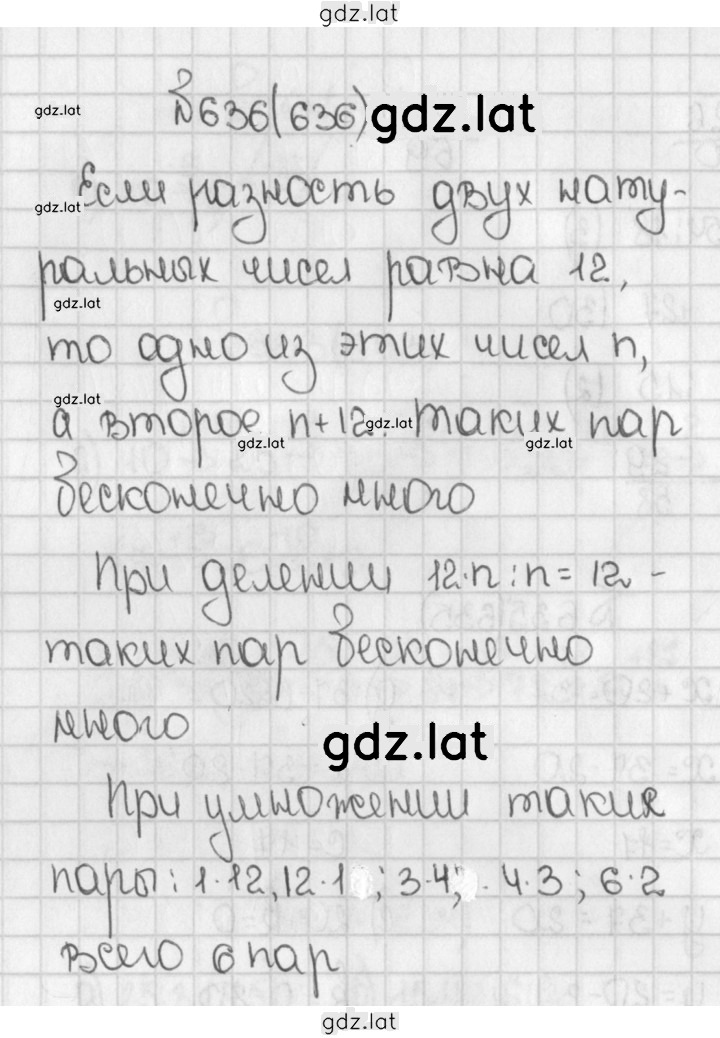 gdz.lat
№636(636) gdz.lat
gdz.lat
Если разность двух нату-
gdz.lat
ральных чисел равна 12,
gdz.lat
то одно из этих чисел n,
gdz.lat
а второе n+12. gdz.lat таких пар
gdz.lat gdz.lat
бесконечно много
При делении 12·n:n=12 -
таких пар бесконечно
много
gdz.lat
При умножении такие
пары: 1·12, 12·1 ; 3·4; . 4·3; 6·2
всего 6 пар
gdz.lat